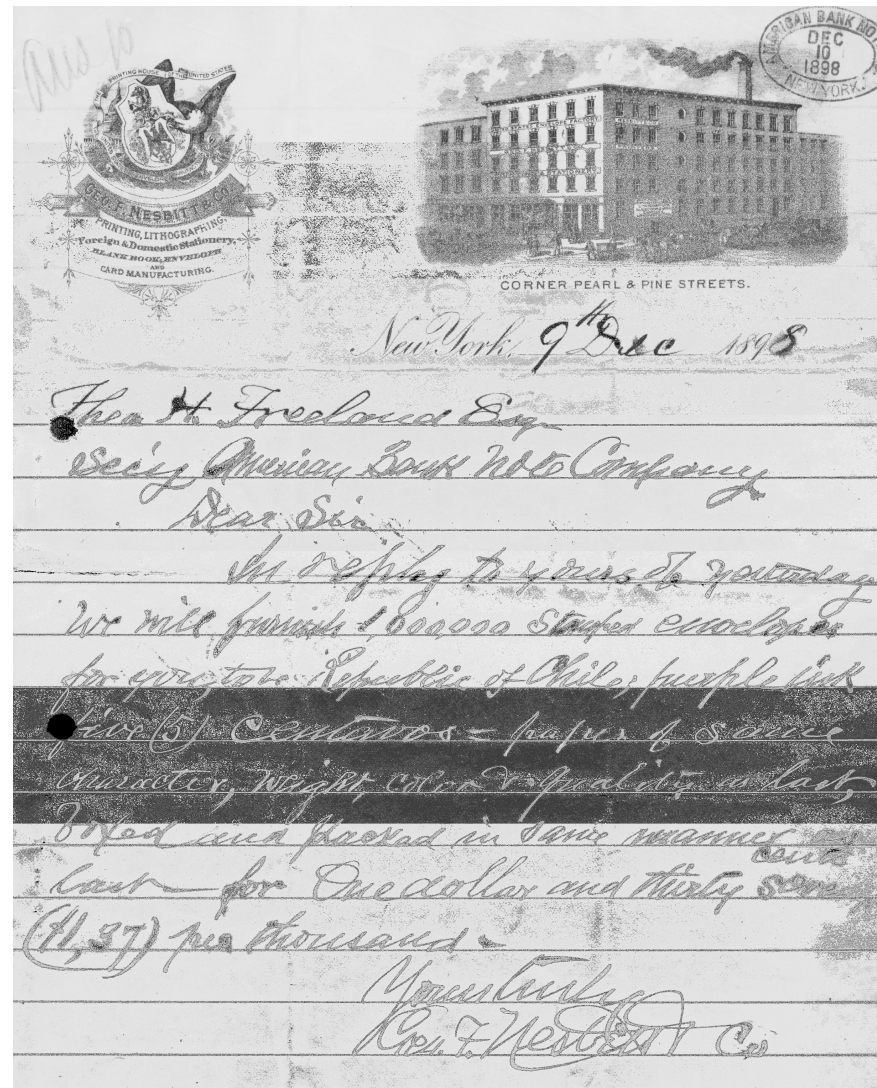 Ans 10
STEAM PRINTING HOUSE OF THE UNITED STATES
GEO. F. NESBITT & CO.
PRINTING, LITHOGRAPHING,
Foreign & Domestic Stationery,
BLANK BOOK, ENVELOPE
AND
CARD MANUFACTURING.
AMERICAN BANK NOTE
DEC
10
1898
NEW YORK.
UNITED STATES ENVELOPE FACTORY
CORNER PEARL & PINE STREETS.
New York, 9th Dec 1898
Theo H. Freeland Esq
Sec'y American Bank Note Company
Dear Sir
In reply to yours of yesterday
We will furnish 1,000,000 Stamped envelopes
for you, to Republic of Chile, purple ink
five (5) Centavos – paper of same
character, weight, color & quality as last,
boxed and packed in same manner as
last – for One dollar and thirty seven cents
($1,37) per thousand –
Yours truly
Geo. F. Nesbitt & Co